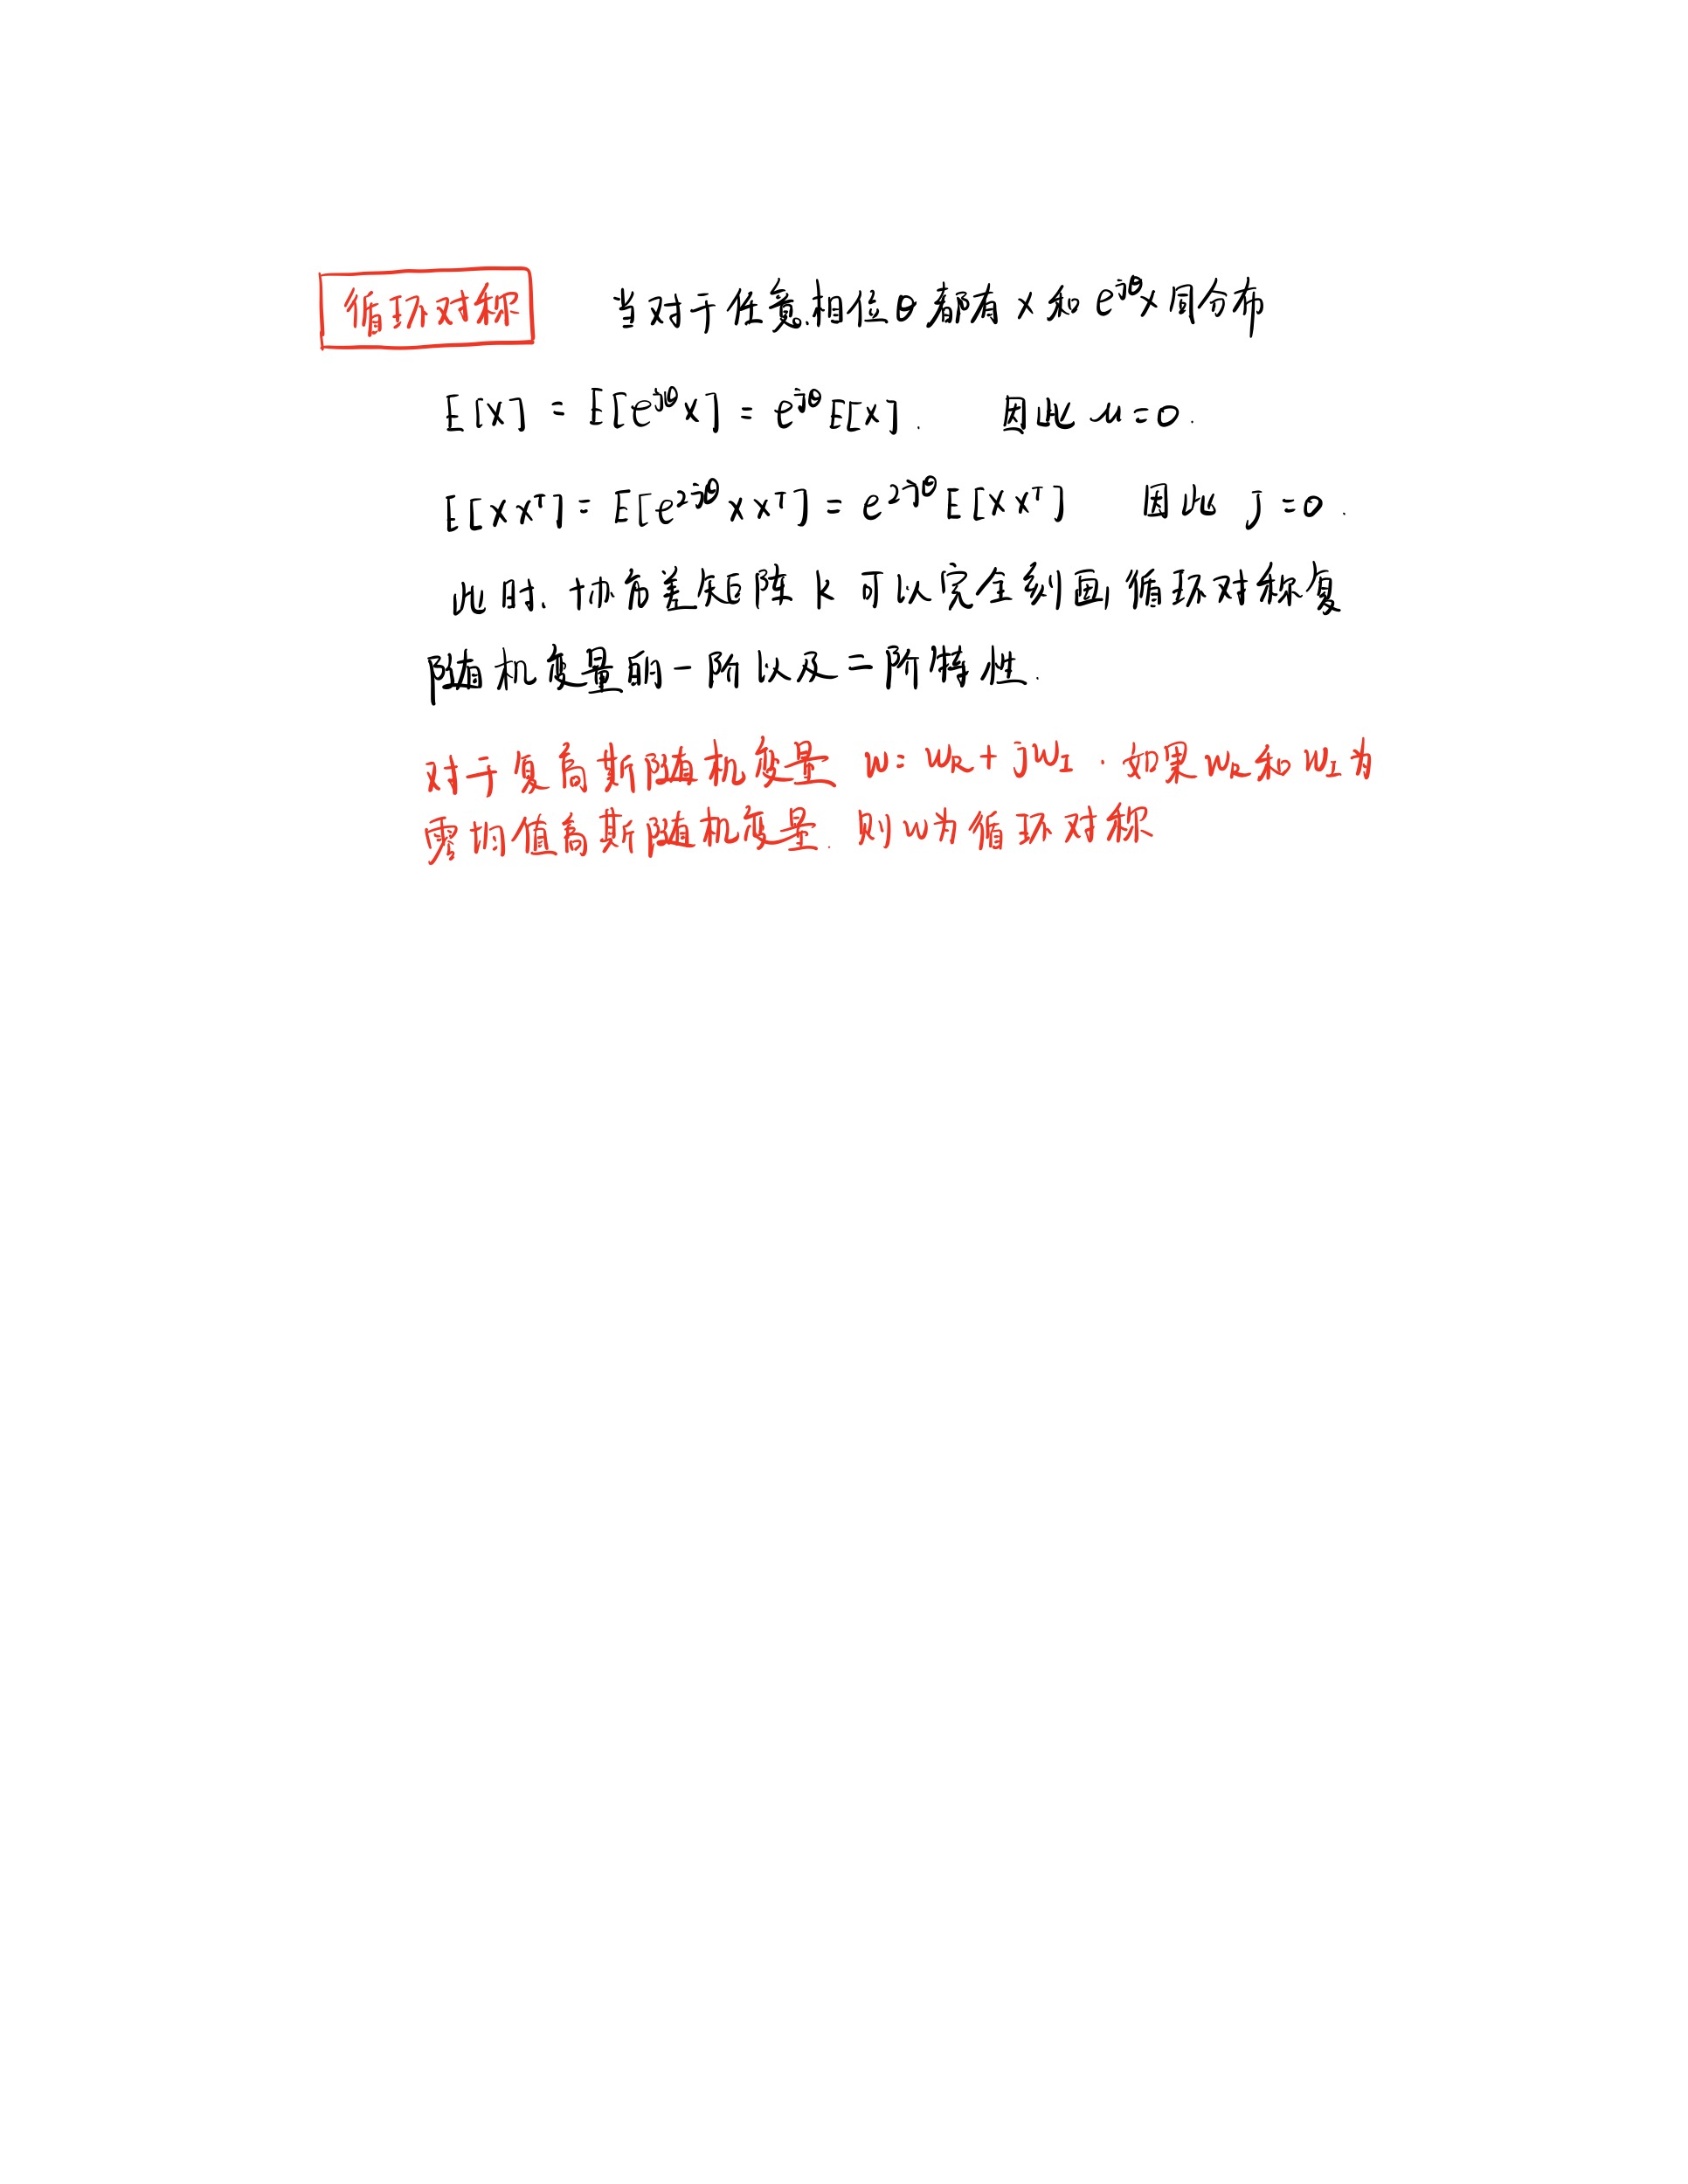 循环对称 当对于任意相位 θ 都有 x 和 e^{jθ}x 同分布
E[x] = E[e^{jθ}x] = e^{jθ}E[x]. 因此 μ=0.
E[xx^T] = E[e^{2jθ}xx^T] = e^{2jθ}E[xx^T] 因此 J=0.
此时、协方差矩阵 K 可以完全刻画循环对称复
随机变量的一阶以及二阶特性.
对于复高斯随机变量 w = w_R + jw_I . 如果 w_R 和 w_I 为
零均值高斯随机变量. 则 w为循环对称